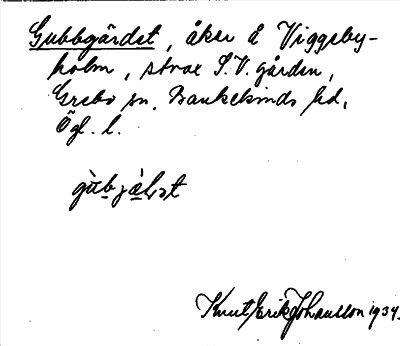 Gubbgärdet, åker å Viggeby-
holm, strax S.V. gården,
Grebo sn. Bankekinds hd.
Ögl. l.
Knut Erik Johansson 1934.